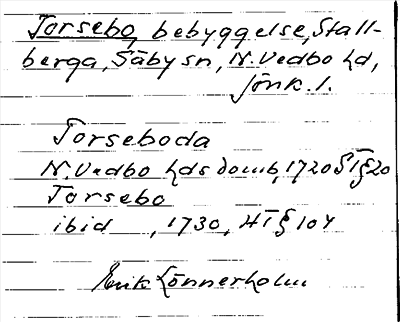 Torsebo bebyggelse, Stall-
berga, Säby sn, N. Vedbo hd,
Jönk. l.
Torseboda
N. Vedbo hds domb, 1720 ST § 20
Torsebo
ibid , 1730, HT § 104
Erik Lönnerholm